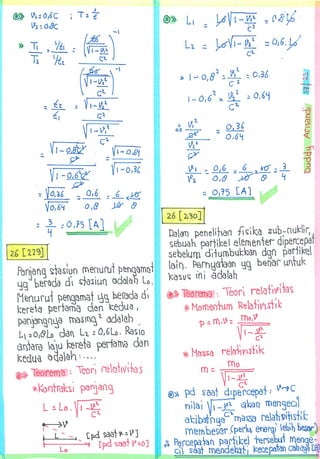 V₁ = 0,6C ; T = 1/f
V₂ = 0,8C
T₁/T₂ = (1/f₁)/(1/f₂)
= f₂/f₁ = √(1-V₂²/C²) / √(1-V₁²/C²)
= √(1-0,8²) / √(1-0,6²) = √(1-0,64) / √(1-0,36)
= √0,36 / √0,64 = 0,6/0,8 = 6/10 · 10/8
= 3/4 = 0,75 [A]
26 [229]
Panjang stasiun menurut pengamat
yg berada di stasiun adalah L₀.
Menurut pengamat yg berada di
kereta pertama dan kedua,
panjangnya masing² adalah
L₁ = 0,8L₀ dan L₂ = 0,6L₀. Rasio
antara laju kereta pertama dan
kedua adalah : ....
Teorema : Teori relativitas
*Kontraksi panjang
L = L₀ . √(1-V²/C²)
→V
L [pd saat V=V]
L₀ [pd saat V=0]
L₁ = L₀√(1-V₁²/C²) = 0,8L₀
L₂ = L₀√(1-V₂²/C²) = 0,6.L₀
1-0,8² = V₁²/C² = 0,36
1-0,6² = V₂²/C² = 0,64
(V₁²/C²) / (V₂²/C²) = 0,36/0,64
V₁/V₂ = 0,6/0,8 = 6/10 · 10/8 = 3/4
= 0,75 [A]
26 [230]
Dalam penelitian fisika sub-nuklir,
sebuah partikel elementer dipercepat
sebelum ditumbukkan dgn partikel
lain. Pernyataan yg benar untuk
kasus ini adalah
Teorema : Teori relativitas
* Momentum Relativistik
p = m.v = m₀.V / √(1-V²/C²)
* Massa relativistik
m = m₀ / √(1-V²/C²)
pd saat dipercepat : V→C
nilai √(1-V²/C²) akan mengecil
akibatnya massa relativistik
membesar (perlu energi lebih besar)
∴ Percepatan partikel tersebut menge-
cil saat mendekati kecepatan cahaya
Duddy Arnandi